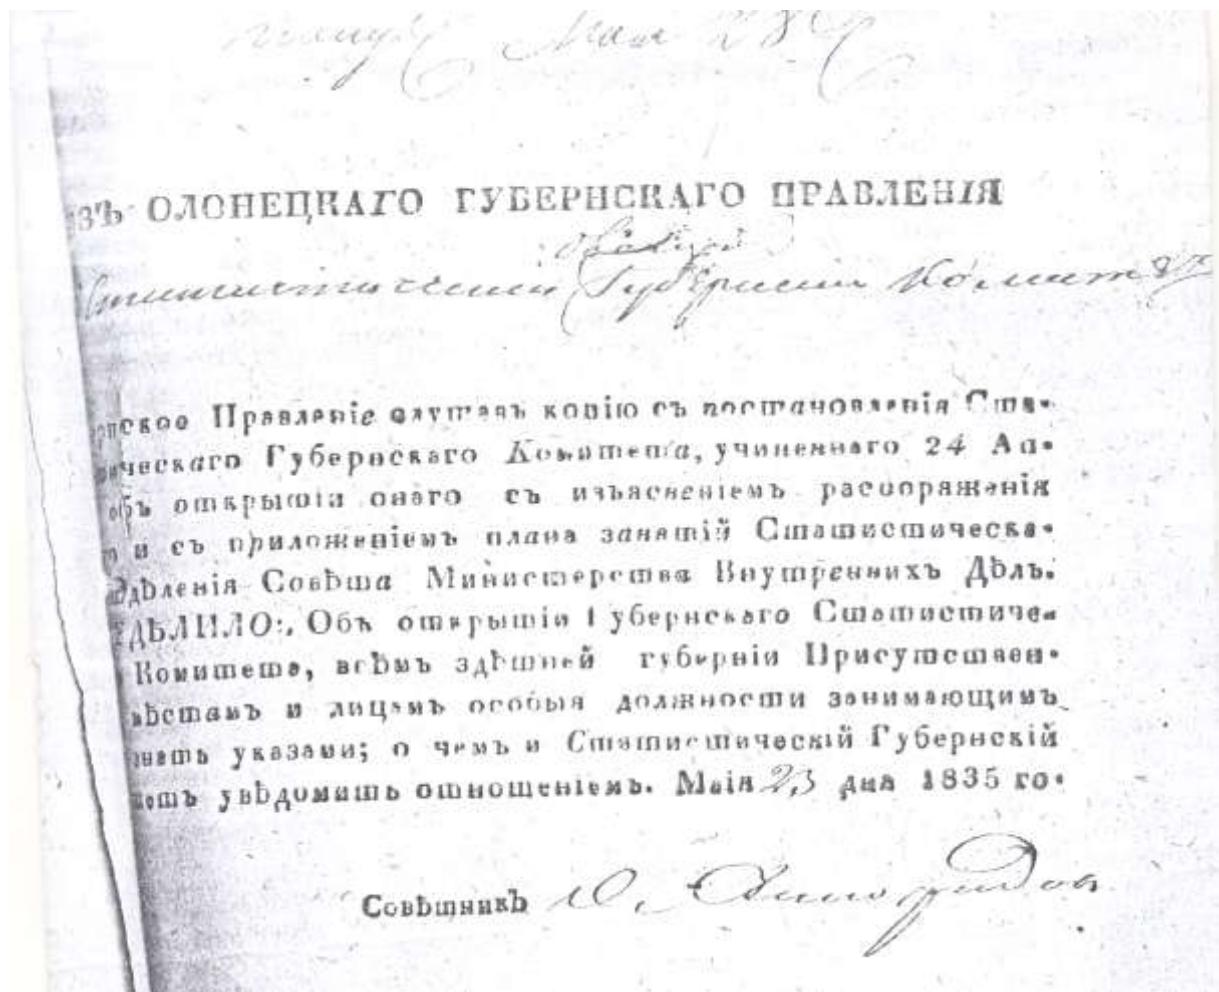 Мая 28
зъ ОЛОНЕЦКАГО ГУБЕРНСКАГО ПРАВЛЕНІЯ
Статистическій Губернскій Комитетъ
рнское Правленіе слушавъ копію съ постановленія Ста-
ическаго Губернскаго Комитета, учиненнаго 24 Ап-
объ открытіи онаго съ изъясненіемъ распоряженія
о и съ приложеніемъ плана занятій Статистическа-
дѣленія Совѣта Министерства Внутреннихъ Дѣлъ.
ДѢЛИЛО: Объ открытіи Губернскаго Статистиче-
Комитета, всѣмъ здѣшней губерніи Присутствен-
мѣстамъ и лицамъ особыя должности занимающимъ
знать указами; о чемъ и Статистическій Губернскій
тетъ увѣдомить отношеніемъ. Маія 23 дня 1835 го-
Совѣтникъ